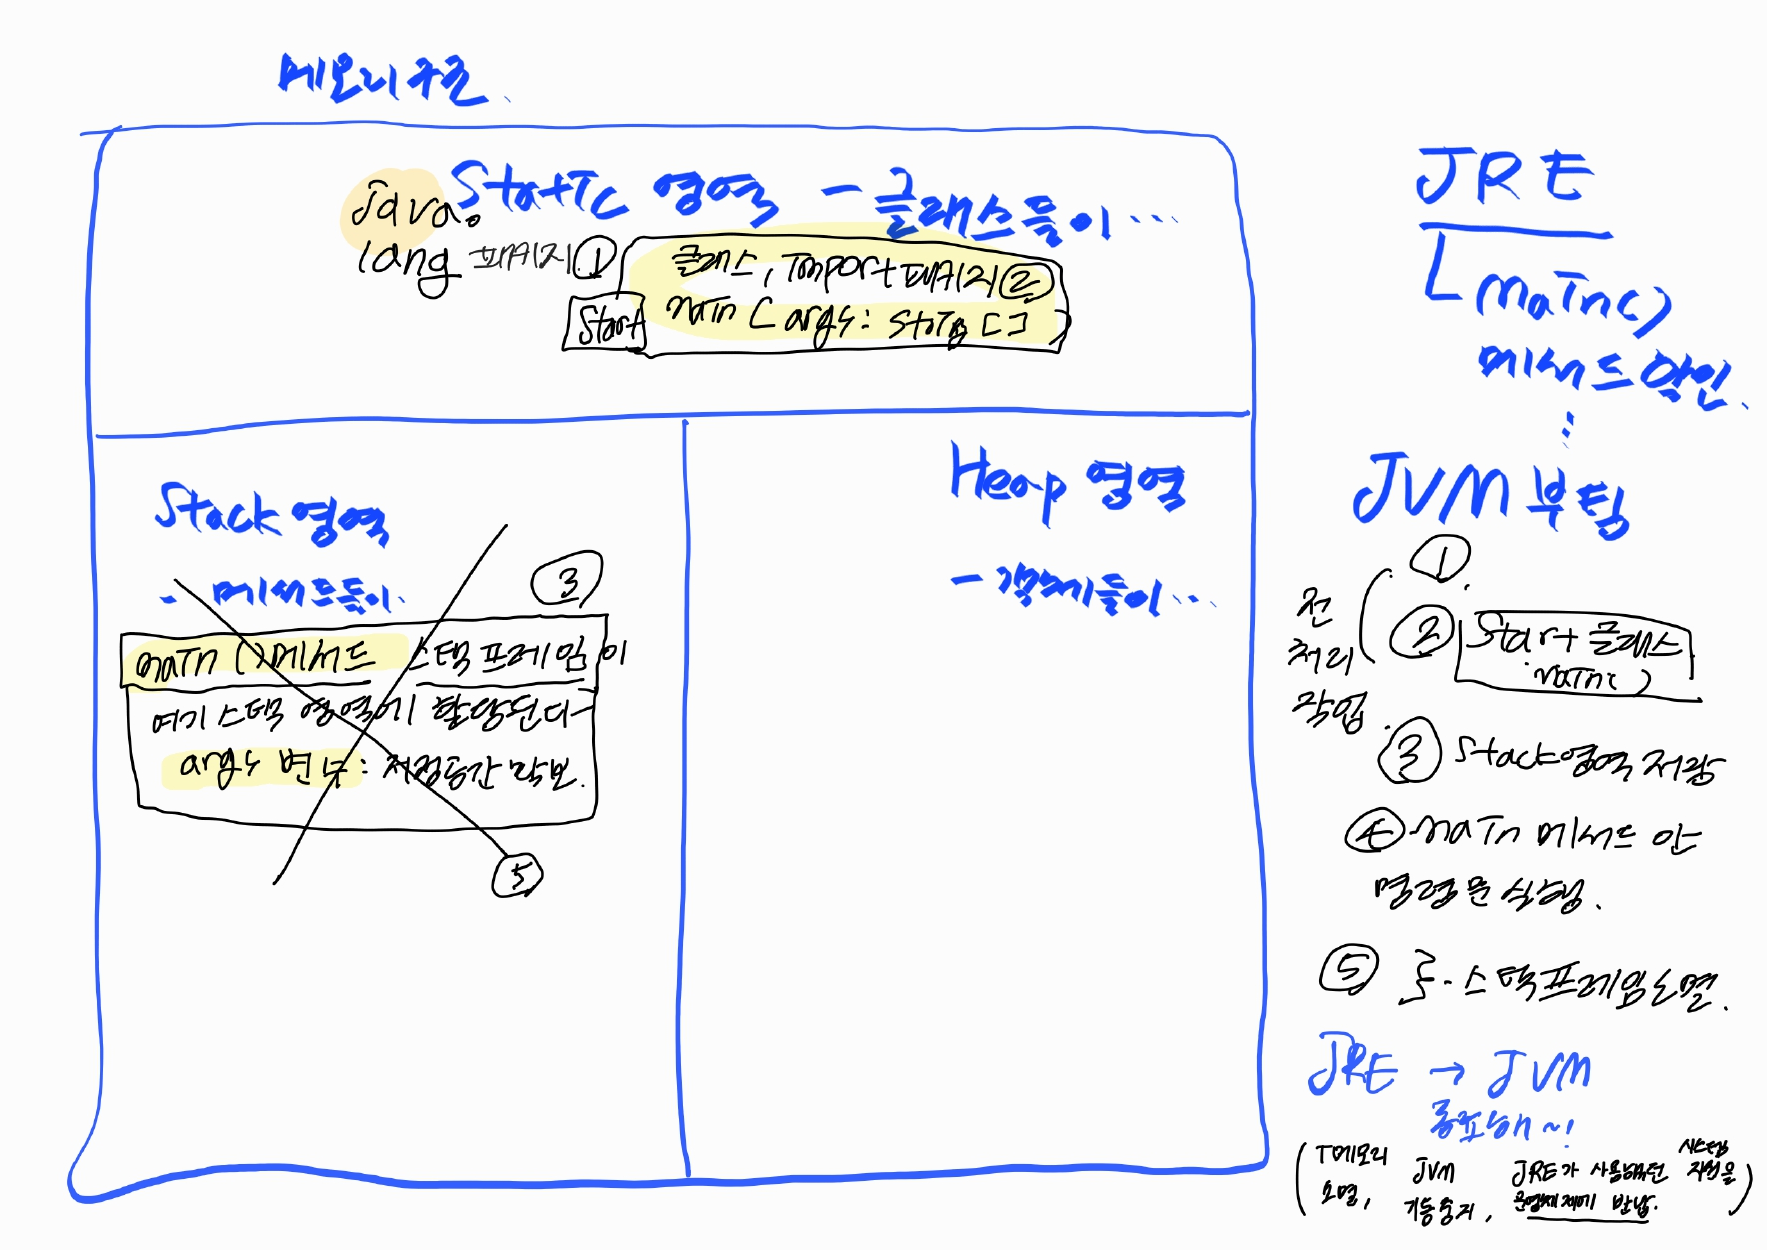 메모리 구조.
Static 영역 - 클래스들이...
java.
lang 패키지 ①
클래스, import 패키지 ②
Start
main ( args: String [ ] )
Stack 영역
- 메서드들이.
③
main ( ) 메서드 스택 프레임이
여기 스택 영역에 할당된다-
args 변수: 저장공간 확보.
⑤
Heap 영역
- 객체들이...
JRE
main( )
메서드 확인.
JVM 부팅
전
처리
작업
①
② Start 클래스
main( )
③ Stack영역 저장
④ main 메서드 안
명령문 실행.
⑤ }. 스택프레임 소멸.
JRE → JVM
종료해~!
( T메모리
소멸,
JVM
기능중지,
JRE가 사용했던 시스템
자원을
운영체제에 반납. )